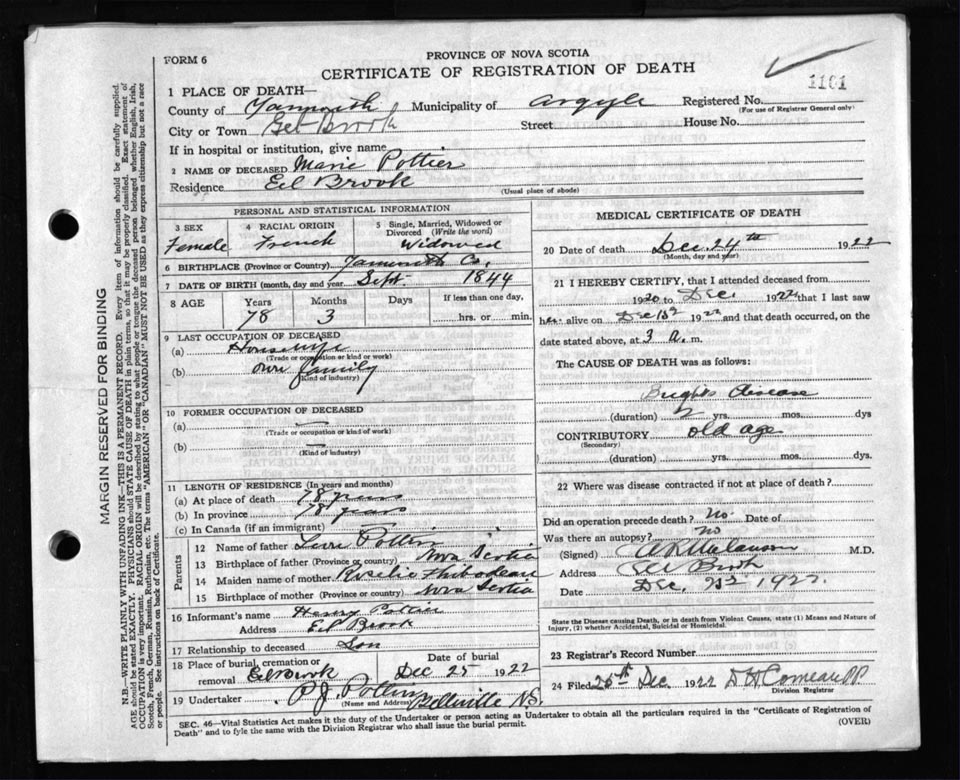 FORM 6
PROVINCE OF NOVA SCOTIA
CERTIFICATE OF REGISTRATION OF DEATH
1101
1 PLACE OF DEATH—
County of Yarmouth Municipality of Argyle Registered No.
(For use of Registrar General only)
City or Town Eel Brook Street House No.
If in hospital or institution, give name
2 NAME OF DECEASED Marie Pottier
Residence Eel Brook
(Usual place of abode)
PERSONAL AND STATISTICAL INFORMATION
3 SEX Female
4 RACIAL ORIGIN French
5 Single, Married, Widowed or Divorced (Write the word) Widowed
6 BIRTHPLACE (Province or Country) Yarmouth Co.
7 DATE OF BIRTH (month, day and year) Sept. 1844
8 AGE Years Months Days If less than one day,
78 3 hrs. or min.
9 LAST OCCUPATION OF DECEASED
(a) Housewife
(Trade or occupation or kind or work)
(b) own family
(Kind of industry)
10 FORMER OCCUPATION OF DECEASED
(a) —
(Trade or occupation or kind of work)
(b) —
(Kind of industry)
11 LENGTH OF RESIDENCE (In years and months)
(a) At place of death 78 years
(b) In province 78 years
(c) In Canada (if an immigrant)
Parents
12 Name of father Pottier
13 Birthplace of father (Province or country) Nova Scotia
14 Maiden name of mother Rosalie Thibodeau
15 Birthplace of mother (Province or country) Nova Scotia
16 Informant's name Henry Pottier
Address Eel Brook
17 Relationship to deceased Son
18 Place of burial, cremation or removal Eel Brook
Date of burial Dec 25 1922
19 Undertaker P.J. Pottier Belleville N.S.
(Name and Address)
MEDICAL CERTIFICATE OF DEATH
20 Date of death Dec. 24th 1922
(Month, day and year)
21 I HEREBY CERTIFY, that I attended deceased from
1920 to Dec. 1922 that I last saw
her alive on Dec 1922 and that death occurred, on the
date stated above, at 3 a.m.
The CAUSE OF DEATH was as follows:
Brights disease
(duration) 2 yrs. mos. dys
CONTRIBUTORY old age
(Secondary)
(duration) yrs. mos. dys.
22 Where was disease contracted if not at place of death?
Did an operation precede death? No Date of
Was there an autopsy? No
(Signed) M.D.
Address Eel Brook
Date Dec. 1922.
State the Disease causing Death, or in death from Violent Causes, state (1) Means and Nature of
Injury, (2) whether Accidental, Suicidal or Homicidal.
23 Registrar's Record Number
24 Filed 26th Dec. 1922
Division Registrar
SEC. 46—Vital Statistics Act makes it the duty of the Undertaker or person acting as Undertaker to obtain all the particulars required in the "Certificate of Registration of
Death" and to fyle the same with the Division Registrar who shall issue the burial permit.
(OVER)
MARGIN RESERVED FOR BINDING
N.B.—WRITE PLAINLY WITH UNFADING INK—THIS IS A PERMANENT RECORD. Every item of information should be carefully supplied.
AGE should be stated EXACTLY. PHYSICIANS should STATE CAUSE OF DEATH in plain terms, so that it may be properly classified. Exact statement of
OCCUPATION is very important. RACIAL ORIGIN will be described by stating to what people or tongue the deceased person belonged whether English, Irish,
Scotch, French, German, Russian, Ruthenian, etc. The terms "AMERICAN" OR "CANADIAN" MUST NOT BE USED as they express citizenship but not a race
or people. See instructions on back of Certificate.